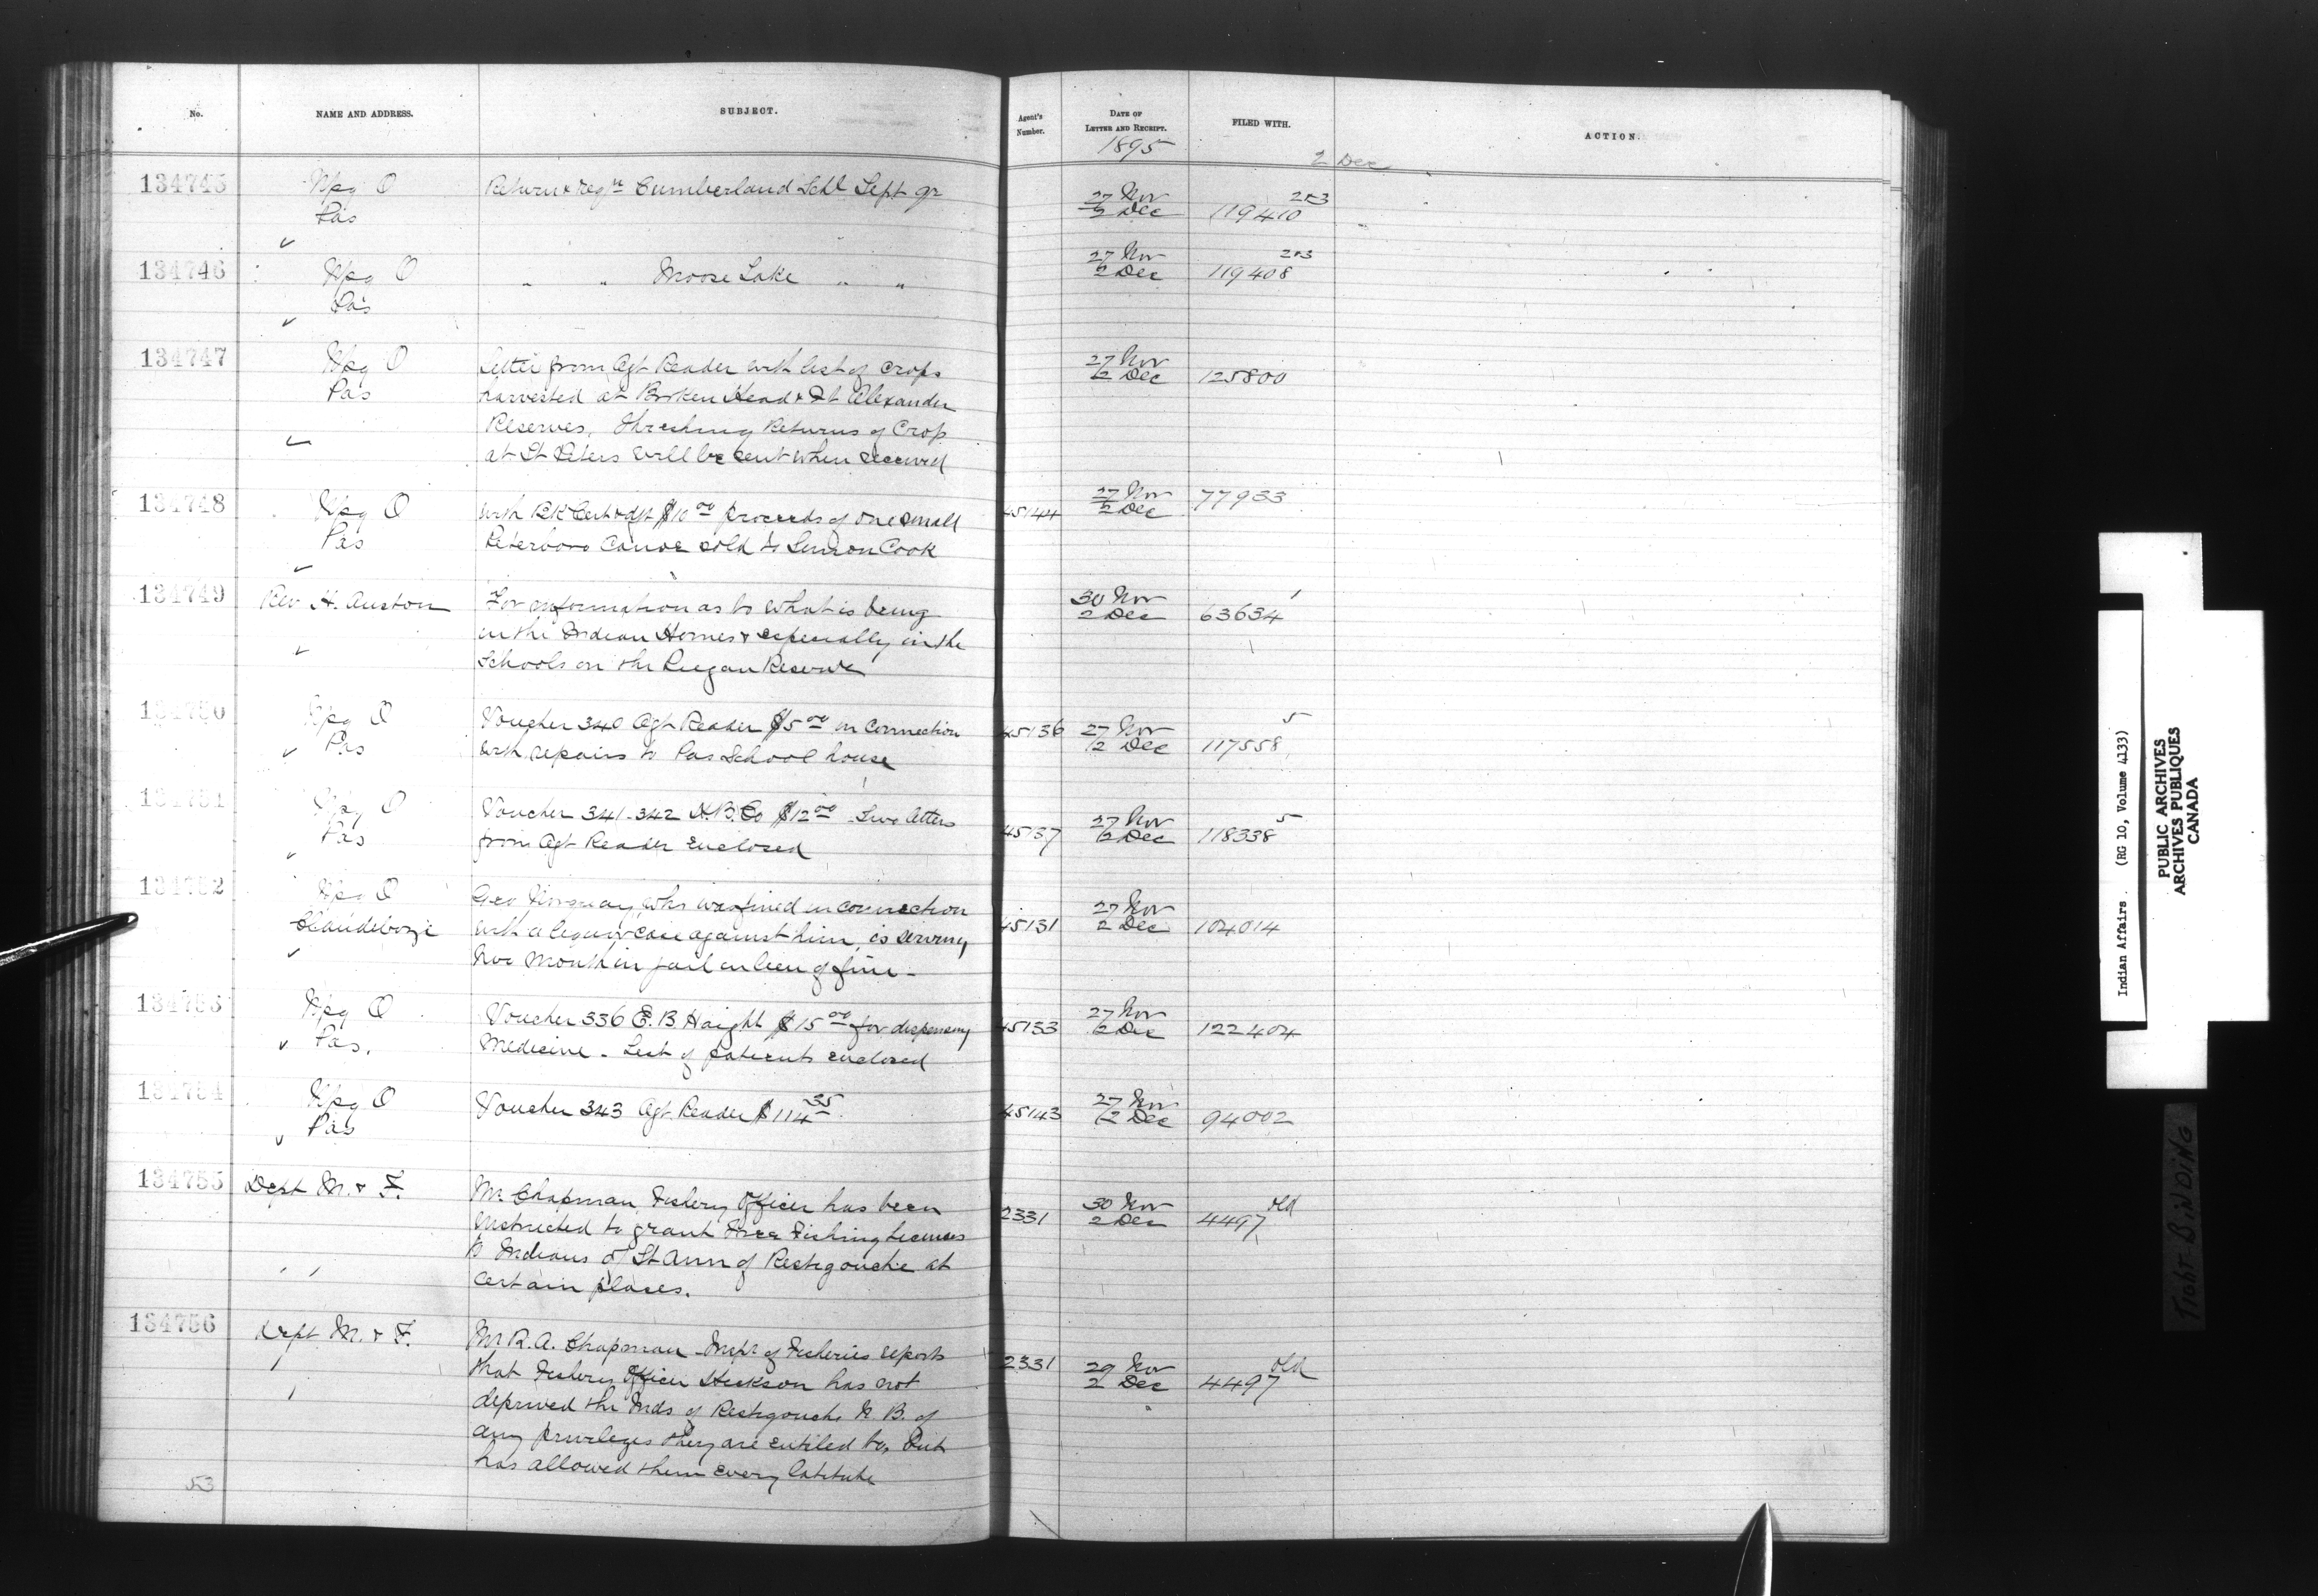 No.
NAME AND ADDRESS.
SUBJECT.
Agent's Number.
DATE OF LETTER AND RECEIPT.
FILED WITH.
ACTION.
1895
2 Dec
134745
Wpg O
Pas
Return & Regr Cumberland Schl Sept qr
27 Nov
2 Dec
119410
2&3
134746
Wpg O
Pas
" " Moose Lake " "
27 Nov
2 Dec
119408
2&3
134747
Wpg O
Pas
Letter from Agt Reader with list of crops
harvested at Broken Head & Ft Alexander
Reserves. Threshing Returns of Crop
at St Peters will be sent when received
27 Nov
2 Dec
125800
134748
Wpg O
Pas
With Bk Cert & dft $10 00 proceeds of one small
Peterboro Canoe sold to Simon Cook
45144
27 Nov
2 Dec
77933
134749
Rev H. Auston
For information as to what is being
in the Indian Homes & especially in the
Schools on the Piegan Reserve
30 Nov
2 Dec
63634
134750
Wpg O
Pas
Voucher 340 Agt Reader $5 00 in connection
with repairs to Pas School house
45136
27 Nov
2 Dec
117558
5
134751
Wpg O
Pas
Voucher 341-342 H.B.Co $12 00 Two letters
from Agt Reader Enclosed
45137
27 Nov
2 Dec
118338
5
134752
Wpg O
Clandeboye
Geo who was fined in connection
with a liquor case against him, is serving
two month in jail in lieu of fine -
45131
27 Nov
2 Dec
104014
134753
Wpg O
Pas.
Voucher 336 E. B Haight $15 00 for dispensing
Medicine - List of patients enclosed
45133
27 Nov
2 Dec
122404
134754
Wpg O
Pas
Voucher 343 Agt Reader $114 35
45143
27 Nov
2 Dec
94002
134755
Dept M. & F.
Mr Chapman, Fishery Officer has been
instructed to grant Free Fishing Licenses
to Indians of St Ann of Restigouche at
certain places.
2331
30 Nov
2 Dec
4497
old
134756
Dept M. & F.
Mr R. A. Chapman - Inspr of Fisheries reports
that Fishery Officer Hickson has not
deprived the Inds of Restigouche N. B. of
any privileges they are entitled to, but
has allowed them every latitude
2331
29 Nov
2 Dec
4497
old
53
Indian Affairs. (RG 10, Volume 4133)
PUBLIC ARCHIVES
ARCHIVES PUBLIQUES
CANADA
TIGHT BINDING